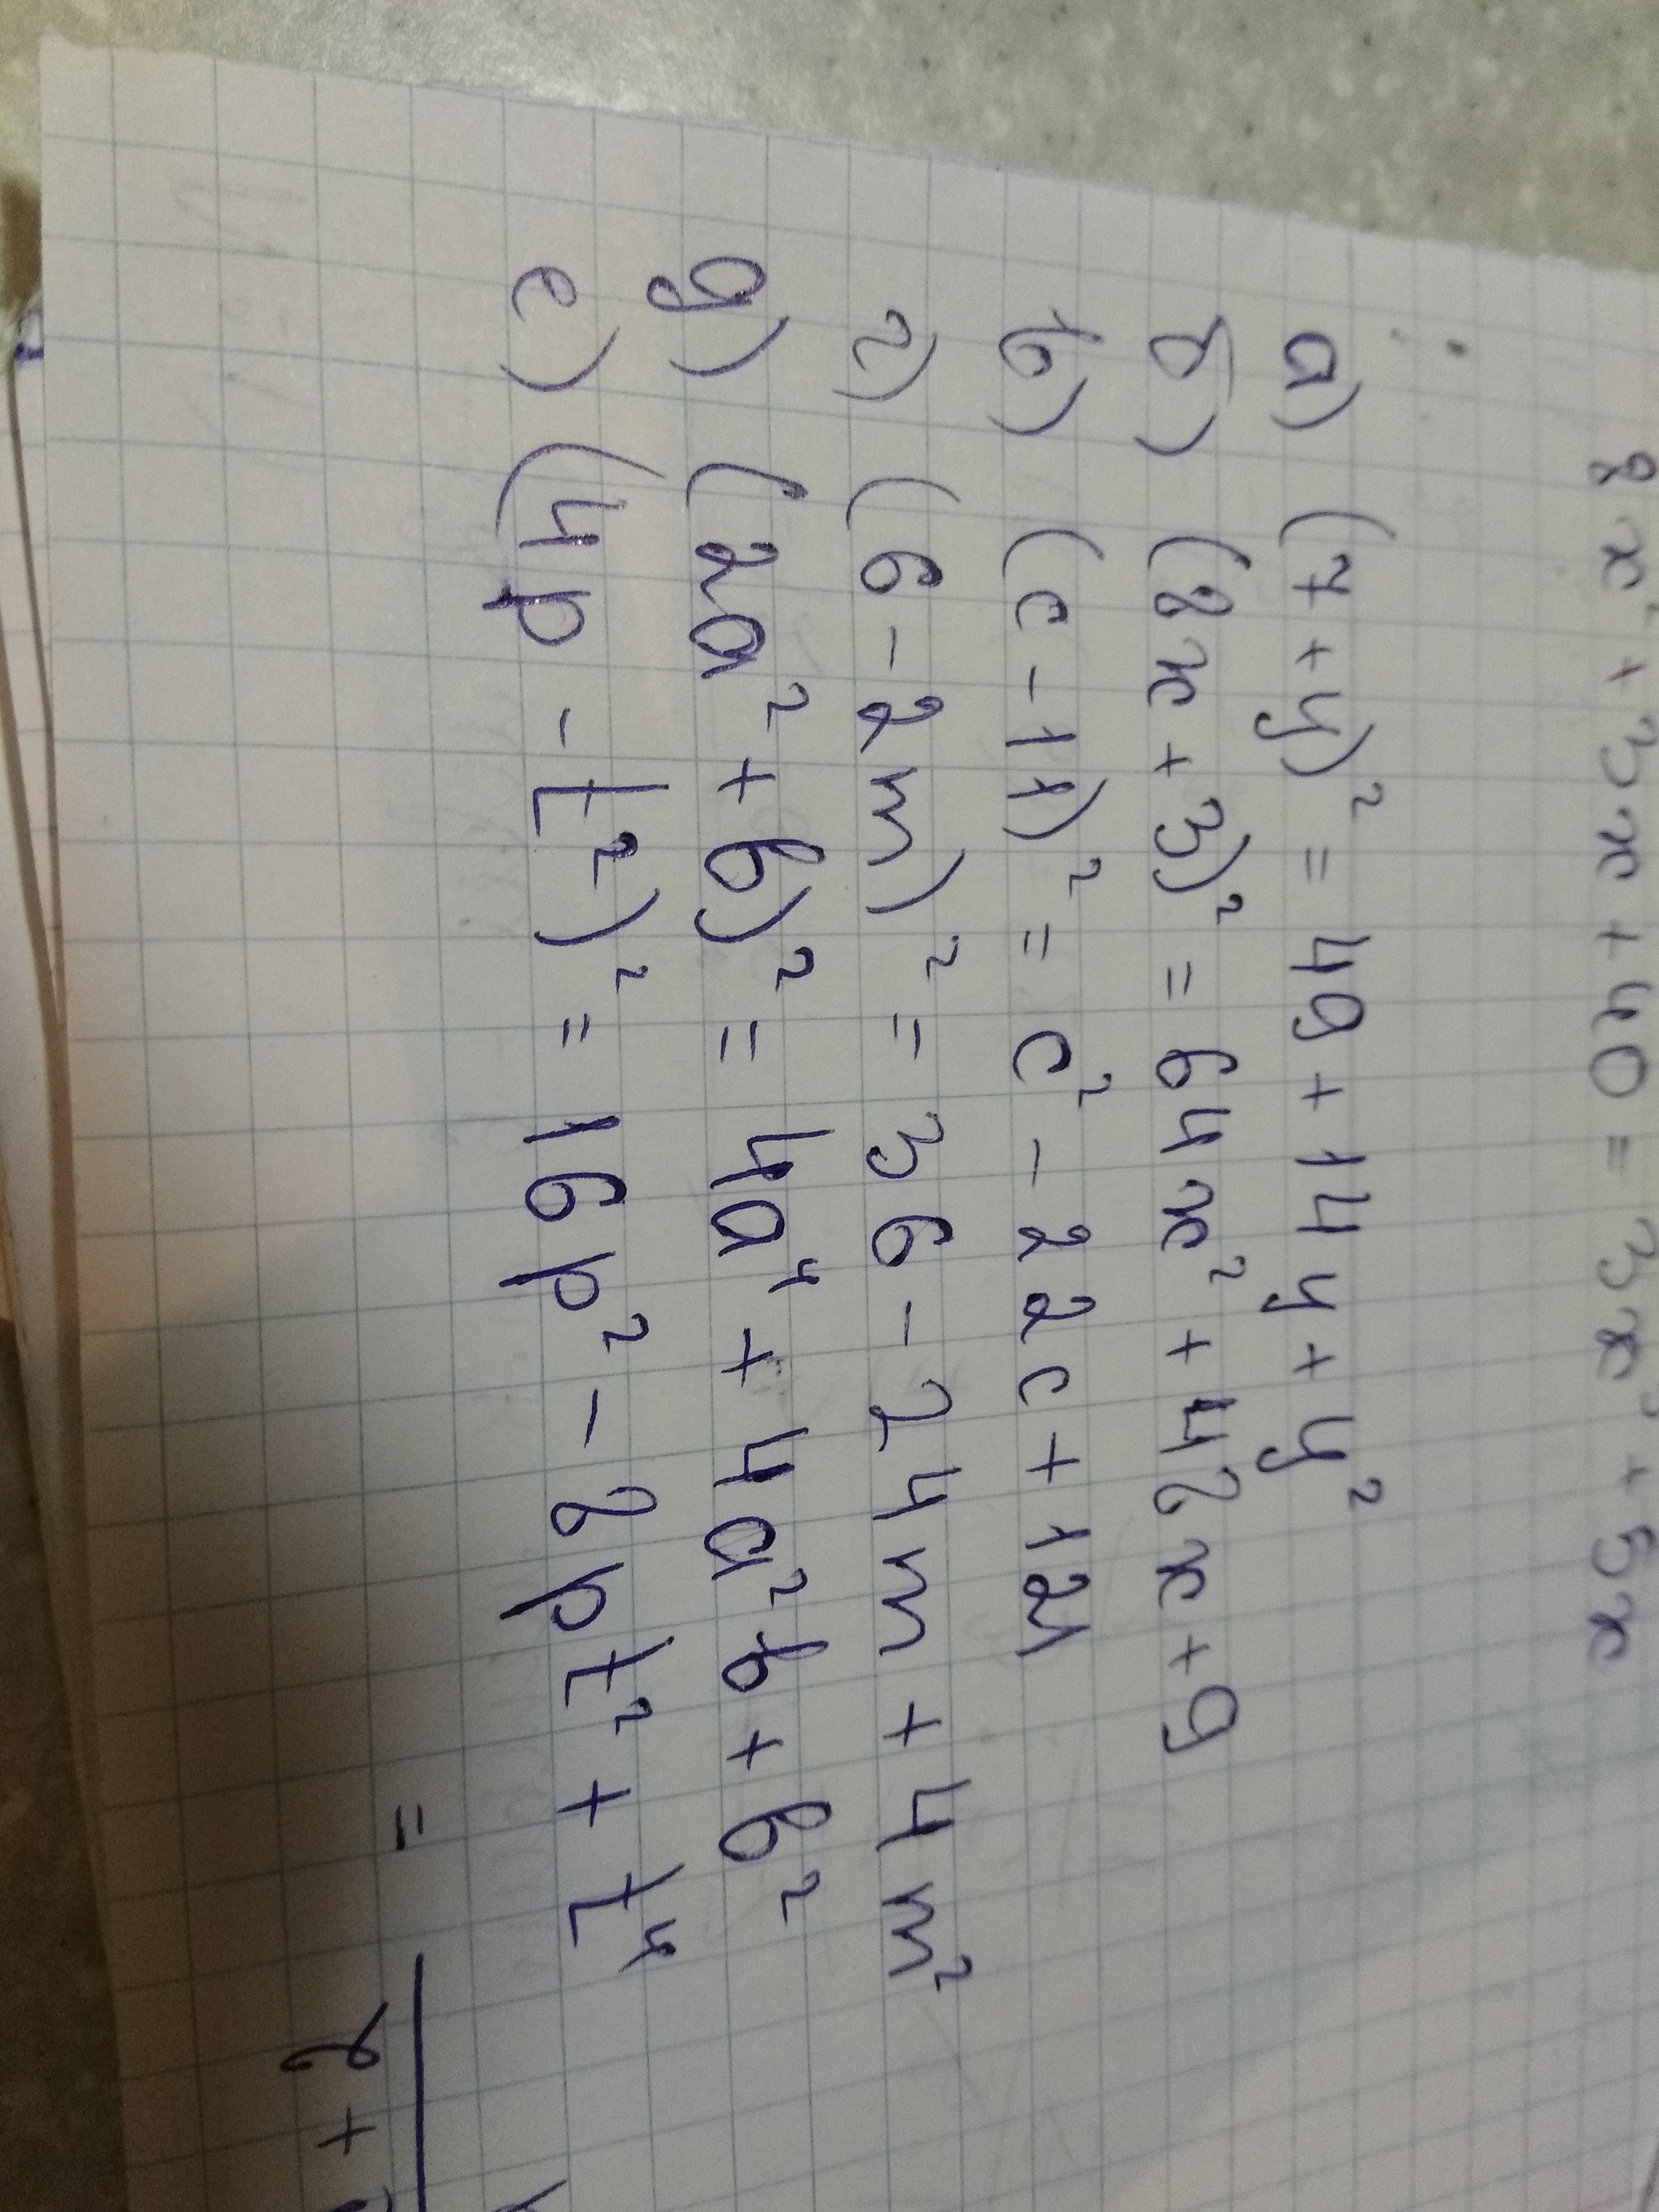 8x² + 3x + 40 = 3x² + 5x
а) (7 + y)² = 49 + 14y + y²
б) (8x + 3)² = 64x² + 48x + 9
в) (c - 11)² = c² - 22c + 121
г) (6 - 2m)² = 36 - 24m + 4m²
д) (2a² + b)² = 4a⁴ + 4a²b + b²
е) (4p - t²)² = 16p² - 8pt² + t⁴
=